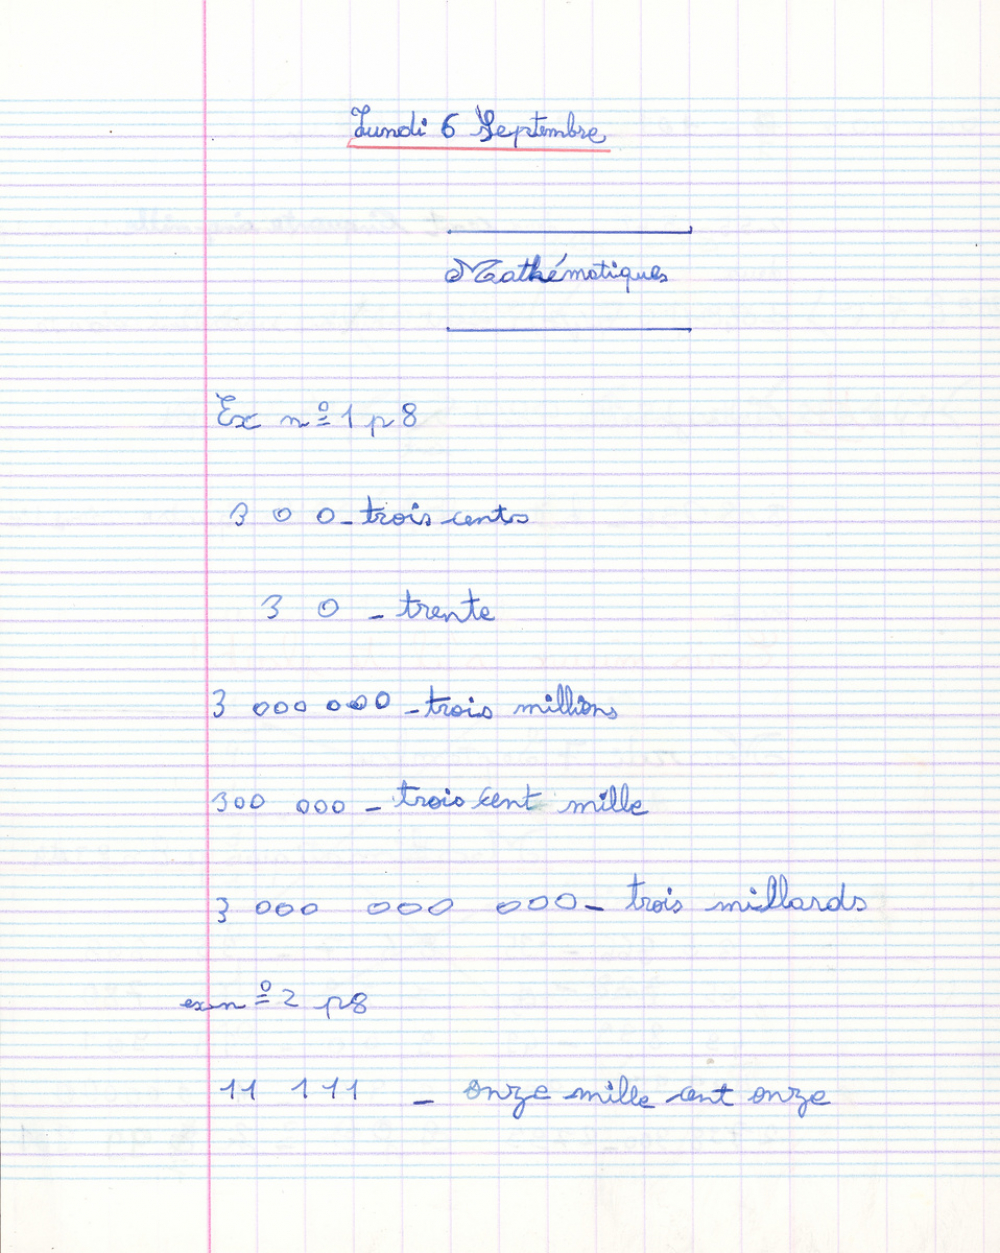 Lundi 6 Septembre
Mathématiques
Ex n° 1 p 8
3 0 0 - trois cents
3 0 - trente
3 000 000 - trois millions
300 000 - trois cent mille
3 000 000 000 - trois millards
ex n° 2 p8
11 111 - onze mille cent onze